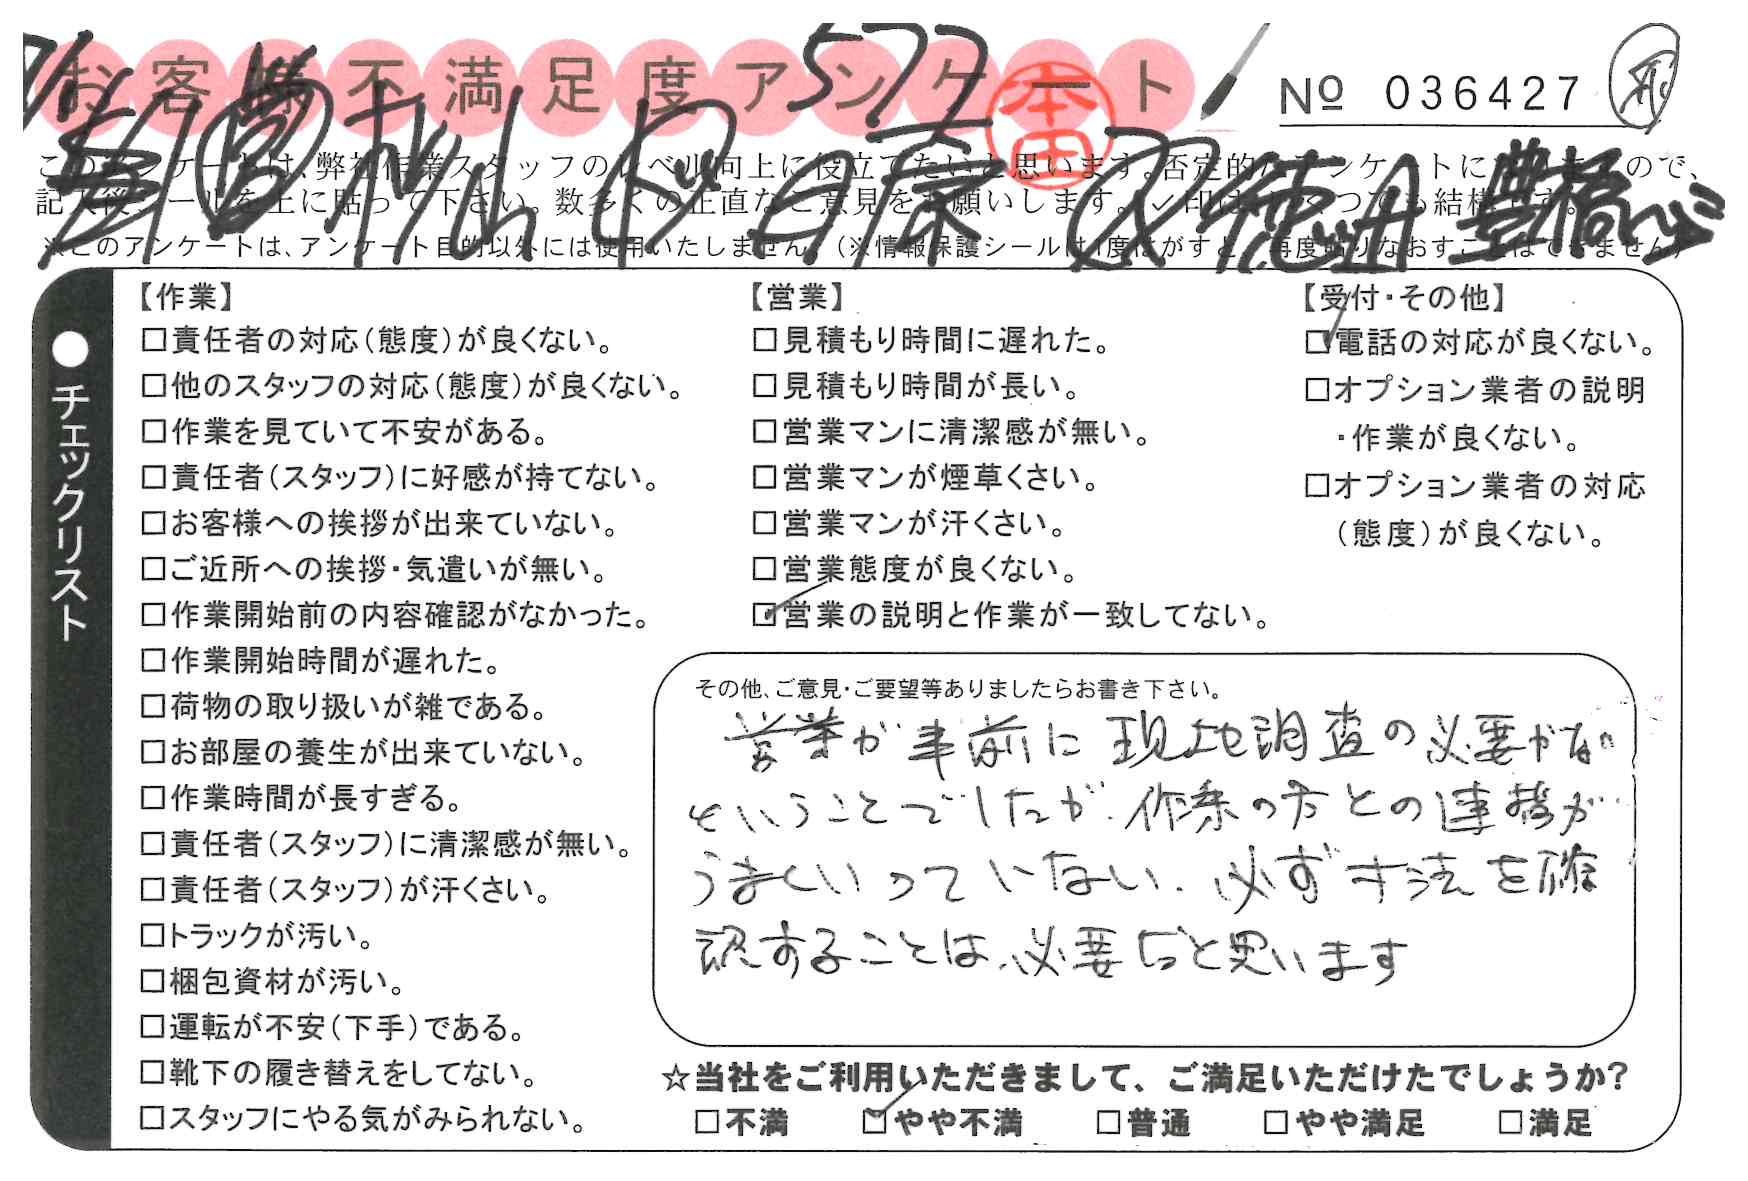 お客様不満足度アンケート
577
本田
Nº 036427
このアンケートは、弊社作業スタッフのレベル向上に役立てたいと思います。否定的なアンケートになりますので、
記入後シールを上に貼って下さい。数多くの正直なご意見をお願いします。✓印はいくつでも結構です。
※このアンケートは、アンケート目的以外には使用いたしません。(※情報保護シールは1度はがすと、再度貼りなおすことはできません)
●チェックリスト
【作業】
□責任者の対応(態度)が良くない。
□他のスタッフの対応(態度)が良くない。
□作業を見ていて不安がある。
□責任者(スタッフ)に好感が持てない。
□お客様への挨拶が出来ていない。
□ご近所への挨拶・気遣いが無い。
□作業開始前の内容確認がなかった。
□作業開始時間が遅れた。
□荷物の取り扱いが雑である。
□お部屋の養生が出来ていない。
□作業時間が長すぎる。
□責任者(スタッフ)に清潔感が無い。
□責任者(スタッフ)が汗くさい。
□トラックが汚い。
□梱包資材が汚い。
□運転が不安(下手)である。
□靴下の履き替えをしてない。
□スタッフにやる気がみられない。
【営業】
□見積もり時間に遅れた。
□見積もり時間が長い。
□営業マンに清潔感が無い。
□営業マンが煙草くさい。
□営業マンが汗くさい。
□営業態度が良くない。
☑営業の説明と作業が一致してない。
【受付・その他】
☑電話の対応が良くない。
□オプション業者の説明
・作業が良くない。
□オプション業者の対応
(態度)が良くない。
その他、ご意見・ご要望等ありましたらお書き下さい。
営業が事前に現地調査の必要がない
ということでしたが作業の方との連携が
うまくいっていない。必ず寸法を確
認することは必要だと思います
☆当社をご利用いただきまして、ご満足いただけたでしょうか?
□不満 ☑やや不満 □普通 □やや満足 □満足